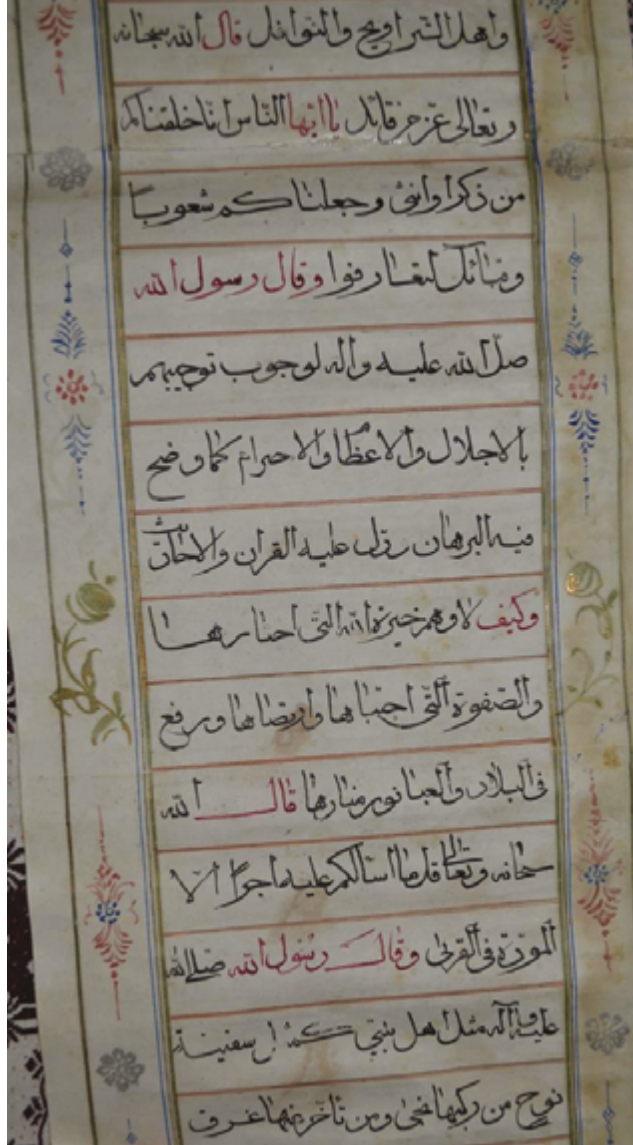 واهل التراويح والنوافل قال الله سبحانه
وتعالى عز من قائل يا ايها الناس انا خلقناكم
من ذكر او انثى وجعلناكم شعوبا
وقبائل لتعارفوا وقال رسول الله
صلى الله عليه واله لوجوب توجيههم
بالاجلال والاعظام والاحترام كما وضح
فيه البرهان ودل عليه القران والاحاديث
وكيف لا وهم خيرة الله التى اختارها
والصفوة التى اجتباها وارتضاها ورفع
فى البلاد والعباد نور منارها قال الله
سبحانه وتعالى قل ما اسالكم عليه اجرا الا
المودة فى القربى وقال رسول الله صلى الله
عليه وآله مثل اهل بيتي كمثل سفينة
نوح من ركبها نجى ومن تاخر عنها غرق